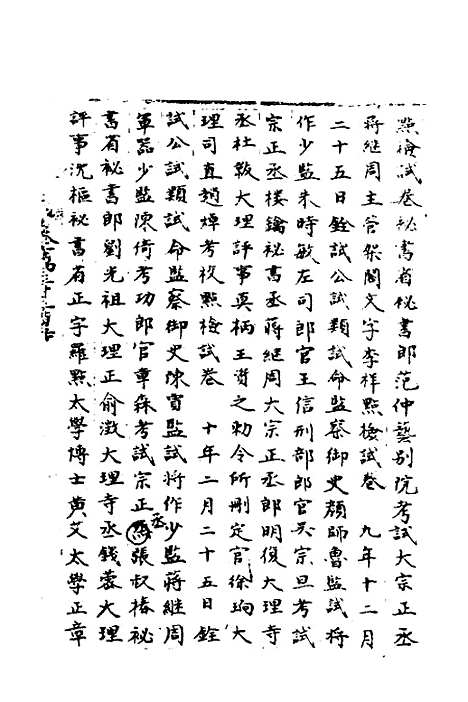 點檢試卷秘書省秘書郎范仲藝别院考試大宗正丞
蔣繼周主管架閣文字李祥點檢試卷　九年十二月
二十五日銓試公試類試命監察御史顏師魯監試將
作少監朱時敏左司郎官王信刑部郎官吳宗旦考試
宗正丞樓鑰秘書丞蔣繼周大宗正丞郎明復大理寺
丞杜敭大理評事莫柄王資之勅令所刪定官徐珣大
理司直趙煒考校點檢試卷　十年二月二十五日銓
試公試類試命監察御史陳賈監試將作少監蔣継周
軍器少監陳倚考功郎官章森考試宗正丞張叔椿秘
書省秘書郎劉光祖大理正俞澂大理寺丞錢蓉大理
評事沈樞秘書省正字羅點太學博士黃艾太學正章